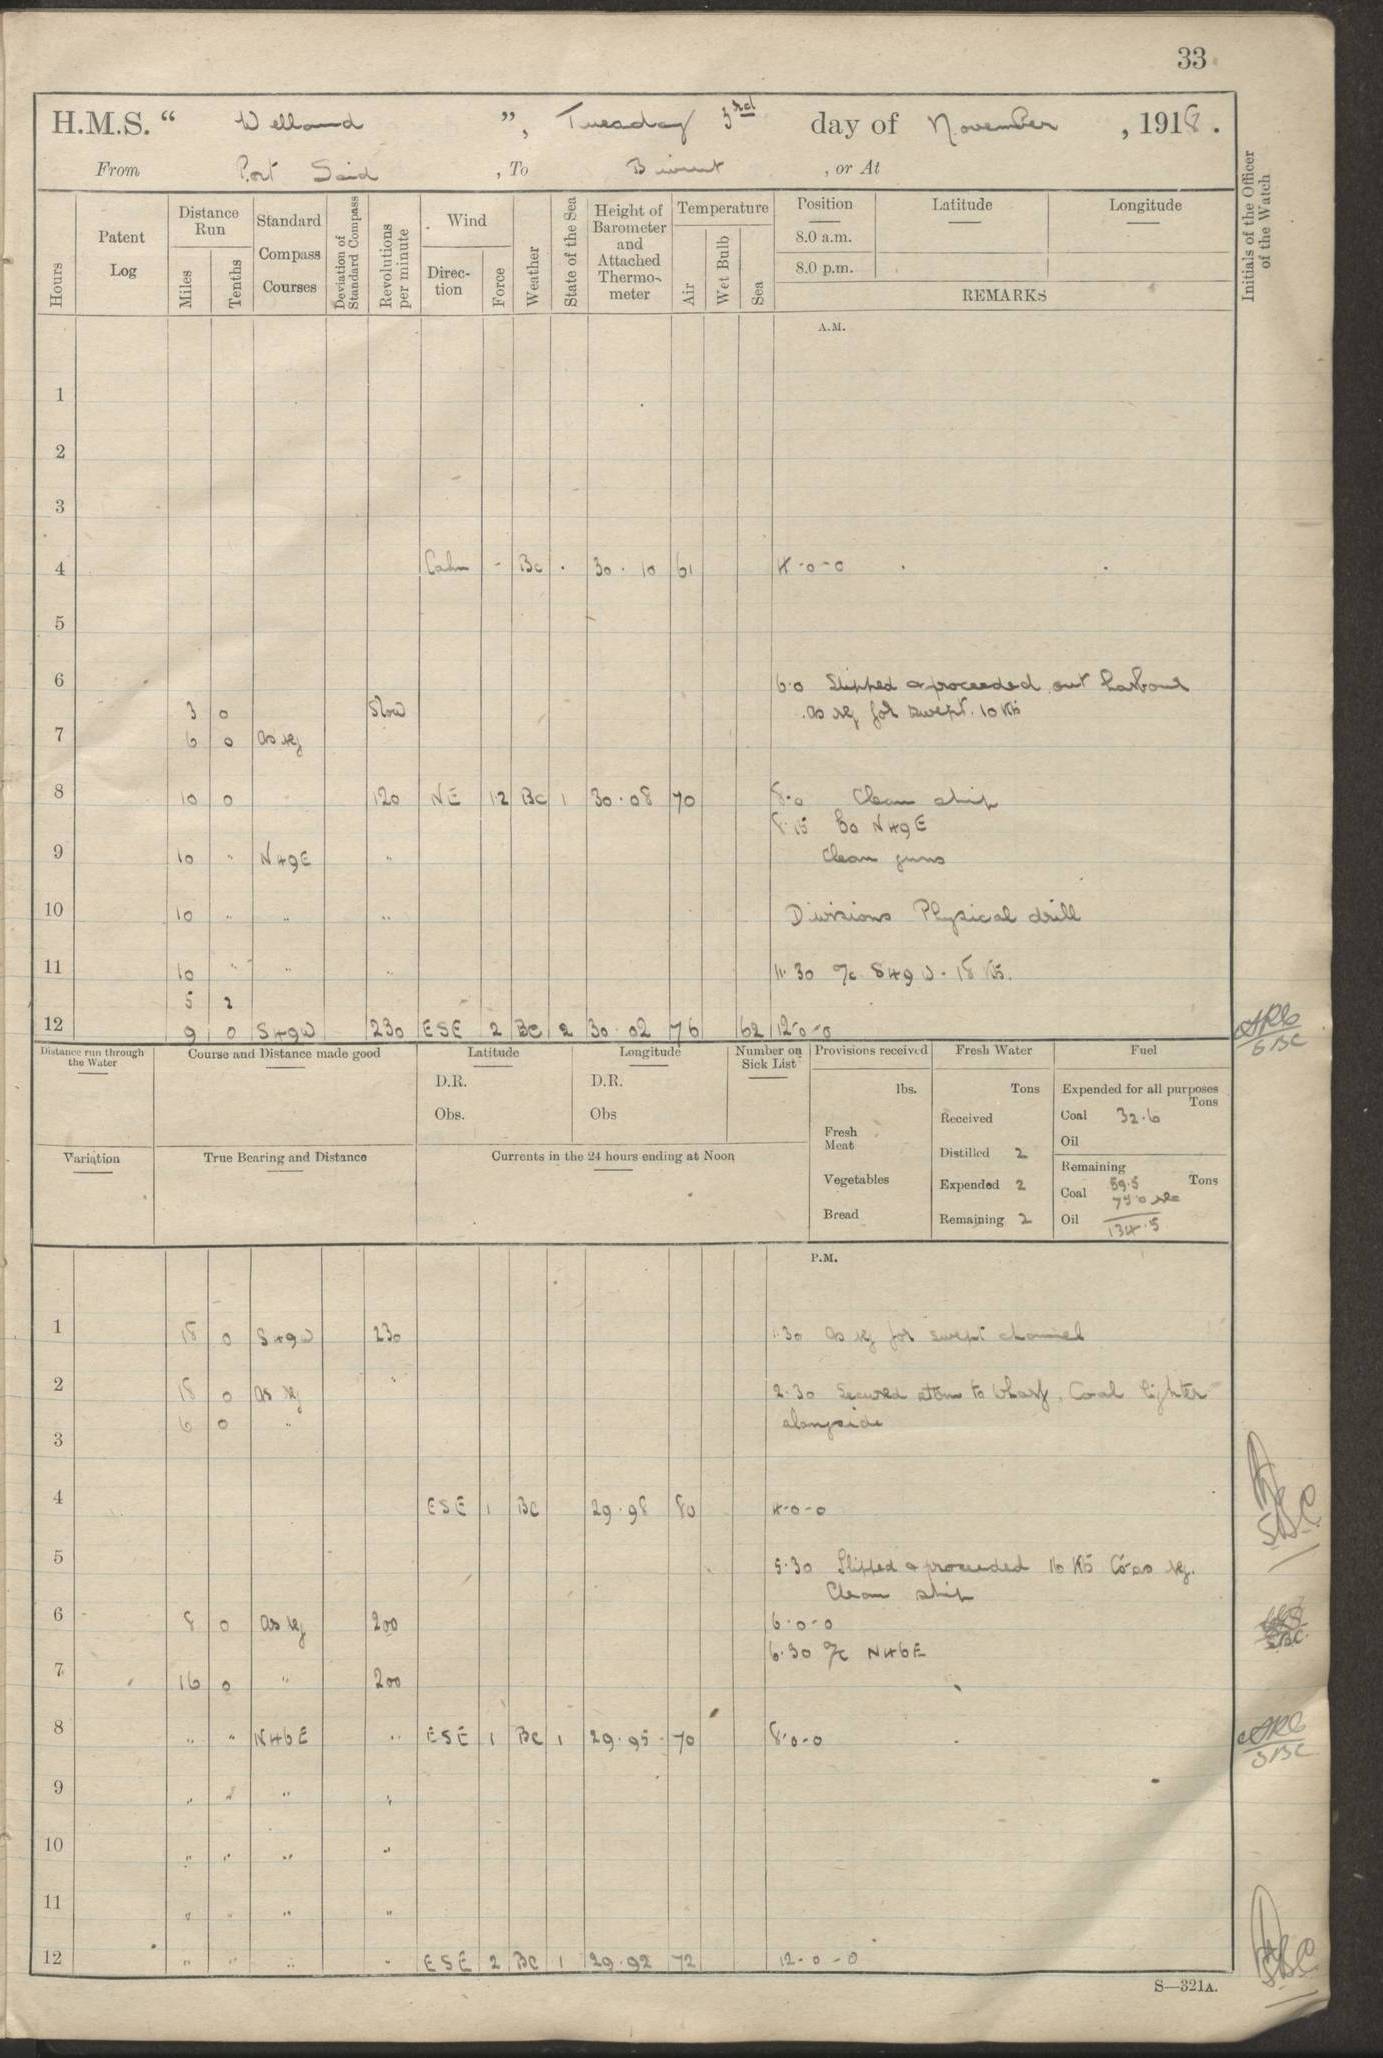 33
H.M.S. " Welland ", Tuesday 5rd day of November , 1918 .
From Port Said , To Beirut , or At
Hours
Patent Log
Distance Run
Miles
Tenths
Standard Compass Courses
Deviation of Standard Compass
Revolutions per minute
Wind
Direction
Force
Weather
State of the Sea
Height of Barometer and Attached Thermometer
Temperature
Air
Wet Bulb
Sea
Position
8.0 a.m.
8.0 p.m.
Latitude
Longitude
REMARKS
Initials of the Officer of the Watch
A.M.
1
2
3
4 Calm - Bc . 30.10 61 4-0-0
5
6 6.0 Slipped & proceeded out harbour
3 0 Slow as req for swept. 10 Kts
7 6 0 as req
8 10 0 120 NE 1.2 Bc 1 30.08 70 8.0 Clean ship
8.15 Co N49E
9 10 " N49E " Clean guns
10 10 " " " Divisions Physical drill
11 10 " " " 11.30 a/c S49W. 18 Kts.
5 2
12 9 0 S49W 230 ESE 2 Bc 2 30.02 76 62 12-0-0
Distance run through the Water
Course and Distance made good
Latitude
D.R.
Obs.
Longitude
D.R.
Obs
Number on Sick List
Provisions received
lbs.
Fresh Meat
Vegetables
Bread
Fresh Water
Tons
Received
Distilled 2
Expended 2
Remaining 2
Fuel
Expended for all purposes
Tons
Coal 32.6
Oil
Remaining
Coal 59.5 Tons
75.0 rec
Oil 134.5
Variation
True Bearing and Distance
Currents in the 24 hours ending at Noon
P.M.
1 18 0 S49W 230 1.30 as req for swept channel
2 18 0 as req " 2.30 Secured stern to wharf. Coal lighter
6 0 " alongside
3
4 ESE 1 BC 29.98 80 4-0-0
5 5.30 Slipped & proceeded 16 Kts Co as req.
Clean ship
6 8 0 as req 200 6-0-0
6.30 a/c N46E
7 16 0 " 200
8 " " N46E " ESE 1 BC 1 29.95 70 8-0-0
9 " " " "
10 " " " "
11 " " " "
12 " " " " ESE 2 BC 1 29.92 72 12-0-0
S—321A.